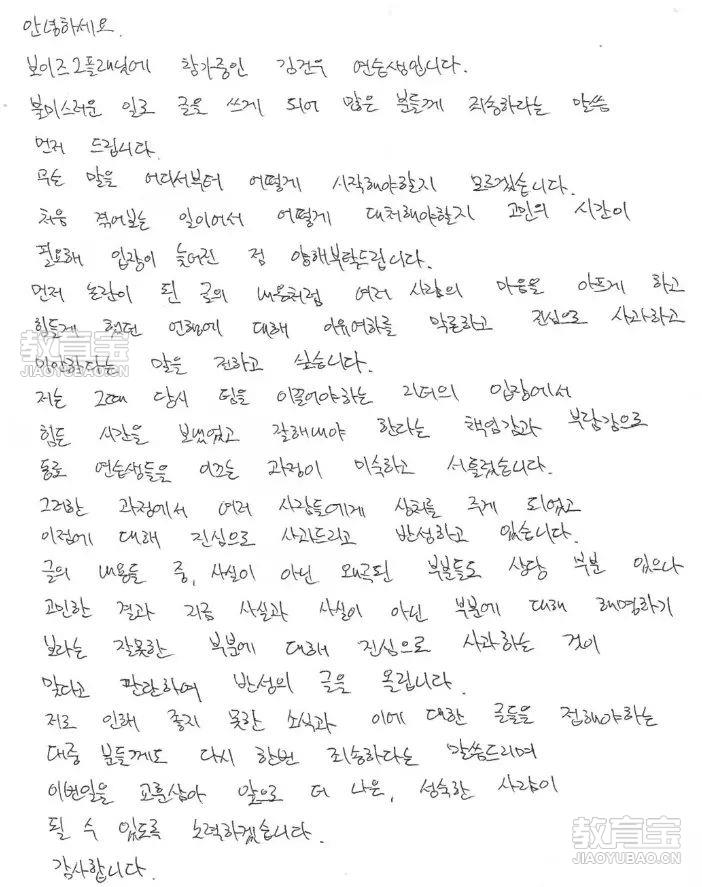 안녕하세요.
보이즈2플래닛에 참가중인 김건우 연습생입니다.
불미스러운 일로 글을 쓰게 되어 많은 분들께 죄송하다는 말씀
먼저 드립니다.
무슨 말을 어디서부터 어떻게 시작해야할지 모르겠습니다.
처음 겪어보는 일이어서 어떻게 대처해야할지 고민의 시간이
필요해 입장이 늦어진 점 양해부탁드립니다.
먼저 논란이 된 글의 내용처럼 여러 사람의 마음을 아프게 하고
힘들게 했던 언행에 대해 이유여하를 막론하고 진심으로 사과하고
미안하다는 말을 전하고 싶습니다.
저는 그때 당시 팀을 이끌어야하는 리더의 입장에서
힘든 시간을 보냈었고 잘해내야 한다는 책임감과 부담감으로
동료 연습생들을 이끄는 과정이 미숙하고 서툴렀습니다.
그러한 과정에서 여러 사람들에게 상처를 주게 되었고
이점에 대해 진심으로 사과드리고 반성하고 있습니다.
글의 내용들 중, 사실이 아닌 왜곡된 부분들도 상당 부분 있으나
고민한 결과 지금 사실과 사실이 아닌 부분에 대해 해명하기
보다는 잘못한 부분에 대해 진심으로 사과하는 것이
맞다고 판단하여 반성의 글을 올립니다.
저로 인해 좋지 못한 소식과 이에 대한 글들을 접해야하는
대중 분들께도 다시 한번 죄송하다는 말씀드리며
이번일을 교훈삼아 앞으로 더 나은, 성숙한 사람이
될 수 있도록 노력하겠습니다.
감사합니다.
教育宝
JIAOYUBAO.CN
教育宝
JIAOYUBAO.CN